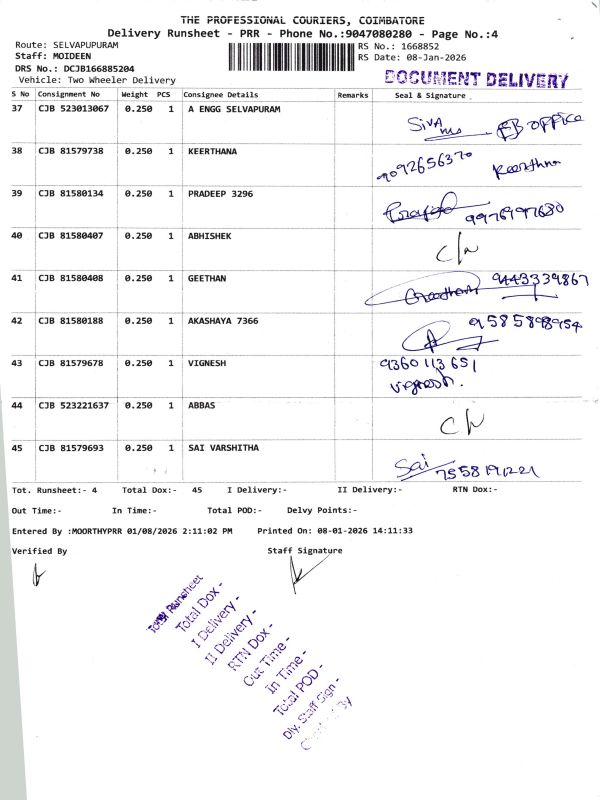 THE PROFESSIONAL COURIERS, COIMBATORE
Delivery Runsheet - PRR - Phone No.:9047080280 - Page No.:4
Route: SELVAPUPURAM
RS No.: 1668852
Staff: MOIDEEN
RS Date: 08-Jan-2026
DRS No.: DCJB166885204
DOCUMENT DELIVERY
Vehicle: Two Wheeler Delivery
S No Consignment No Weight PCS Consignee Details Remarks Seal & Signature
37 CJB 523013067 0.250 1 A ENGG SELVAPURAM
Siva EB OFFICE
38 CJB 81579738 0.250 1 KEERTHANA
9092656370 Keerthna
39 CJB 81580134 0.250 1 PRADEEP 3296
9976997680
40 CJB 81580407 0.250 1 ABHISHEK
C/N
41 CJB 81580408 0.250 1 GEETHAN
Geethan 9443339867
42 CJB 81580188 0.250 1 AKASHAYA 7366
9585898954
43 CJB 81579678 0.250 1 VIGNESH
9360113651
Vignesh.
44 CJB 523221637 0.250 1 ABBAS
C/N
45 CJB 81579693 0.250 1 SAI VARSHITHA
Sai 7558191221
Tot. Runsheet:- 4 Total Dox:- 45 I Delivery:- II Delivery:- RTN Dox:-
Out Time:- In Time:- Total POD:- Delvy Points:-
Entered By :MOORTHYPRR 01/08/2026 2:11:02 PM Printed On: 08-01-2026 14:11:33
Verified By Staff Signature
Total Runsheet
Total Dox -
I Delivery -
II Delivery -
RTN Dox -
Out Time -
In Time -
Total POD -
Dly. Staff Sign -
Checked By